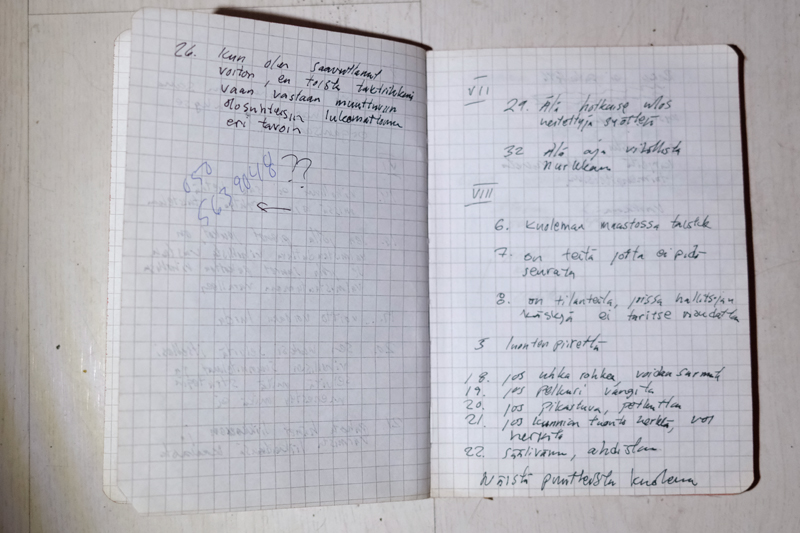 26. Kun olen saavuttanut
voiton, en toista taktiikkaani
vaan vastaan muuttuviin
olosuhteisiin lukemattomin
eri tavoin
050
5639048??
←
VII
29. Älä hotkaise ulos
heitettyjä syöttejä
32 Älä aja vihollista
nurkkaan
VIII
6. Kuoleman maastossa taistele
7. on teitä joita ei pidä
seurata
8. on tilanteita, joissa hallitsijan
käskyjä ei tarvitse noudattaa
5 luonteenpiirrettä
18. jos uhka rohkea, voidaan surmata
19. jos pelkuri vangita
20. jos pikastuva, petkuttaa
21. jos kunnian tunto herkkä, voi
herjata
22. säälivänä, ahdistaa
Näistä puutteista kuolema